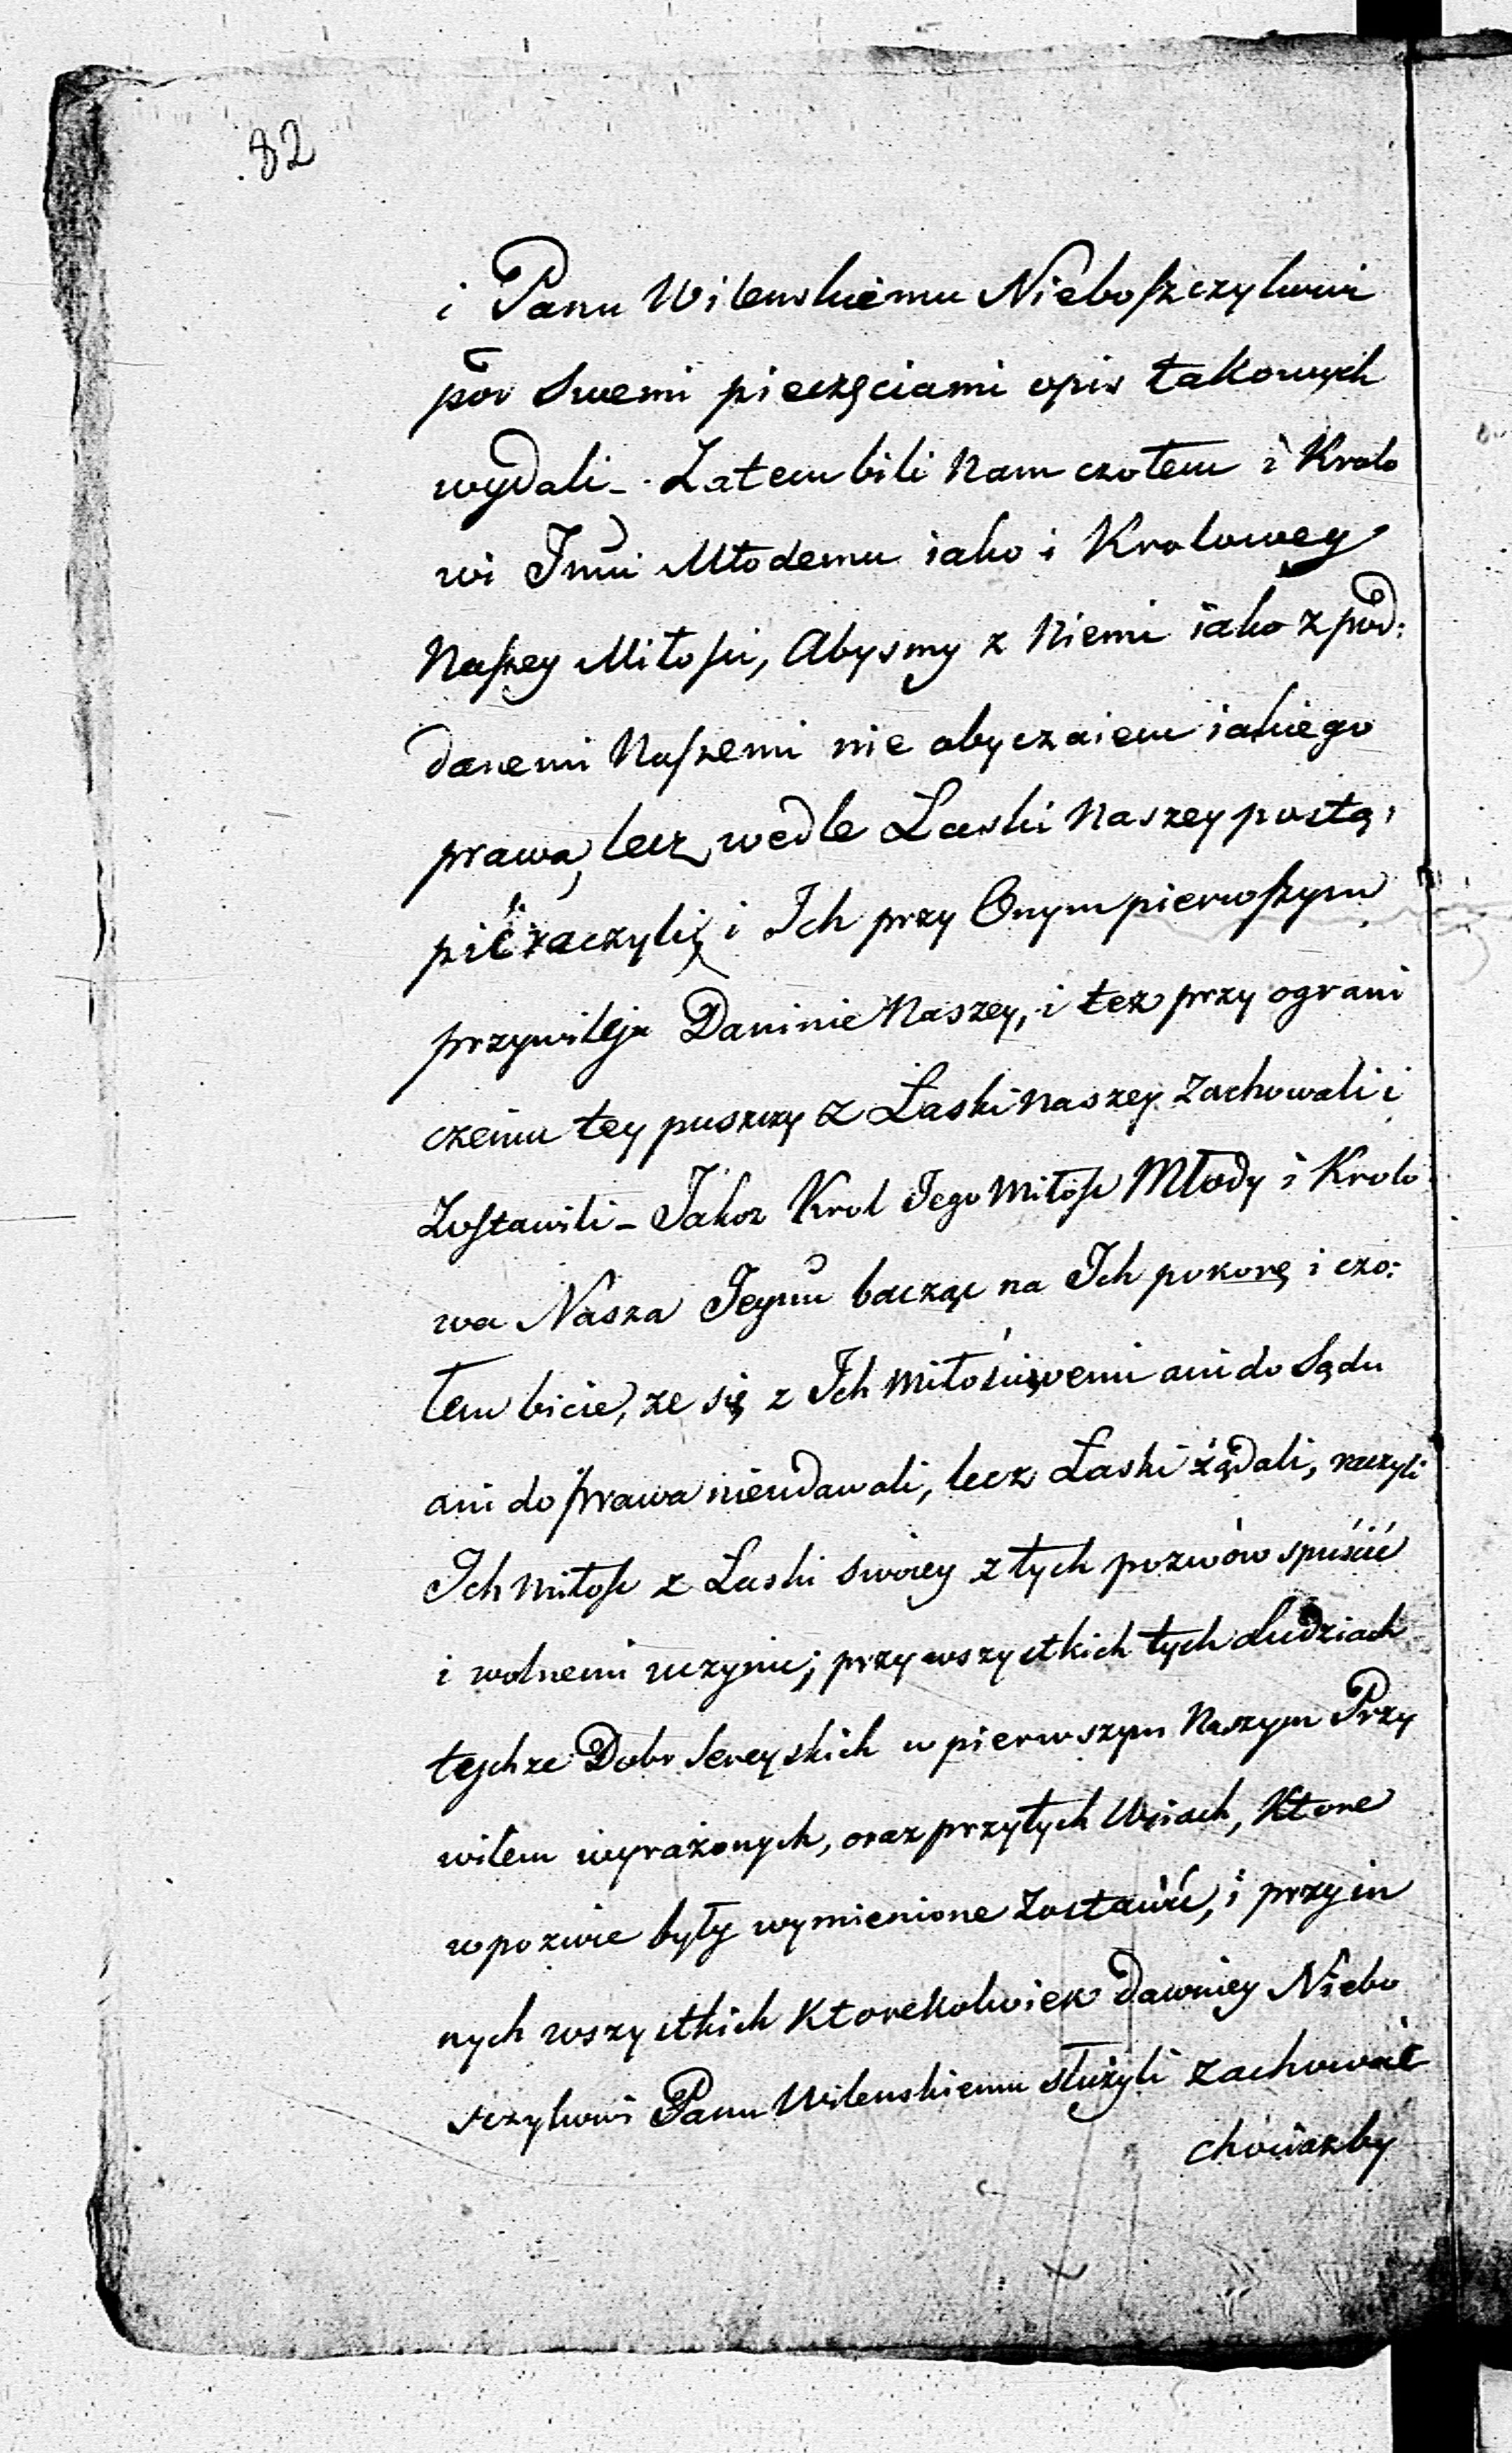 82
i Panu Wilenskiemu Nieboszczykowi
pod Swemi pieczęciami opis takowych
wydali - Zatem bili Nam czołem i Krolo
wi Jmci Młodemu iako i Krolowey
Naszey Miłości, Abysmy z Niemi iako z pod:
danemi Naszemi nie obyczaiem iakiego
prawa, lecz wedle Łaski Naszey postą,
pić raczyli i Ich przy Onym pierwszym
przywileju Daninie Naszey, i tez przy ograni
czeniu tey puszczy z Łaski naszey zachowali i
Zostawili - Jakoz Krol Jego Miłość Młody i Krolo
wa Nasza Jeymć bacząc na Ich pokorę i czo:
łem bicie, ze się z Ich Miłościwemi ani do Sądu
ani do prawa nieudawali, lecz Łaski żądali, raczyli
Ich Miłość z Łaski swoiey z tych pozwów spuścić
i wolnemi uczynić; przy wszystkich tych Ludziach
tychze Dobr Sereyskich w pierwszym Naszym Przy
wilem wyrażonych, oraz przy tych Wsiach, Ktore
w pozwie były wymienione Zostawić, i przy in
nych wszystkich Ktorekolwiek dawniey Niebo
szczykowi Panu Wilenskiemu służyli zachować
chociazby